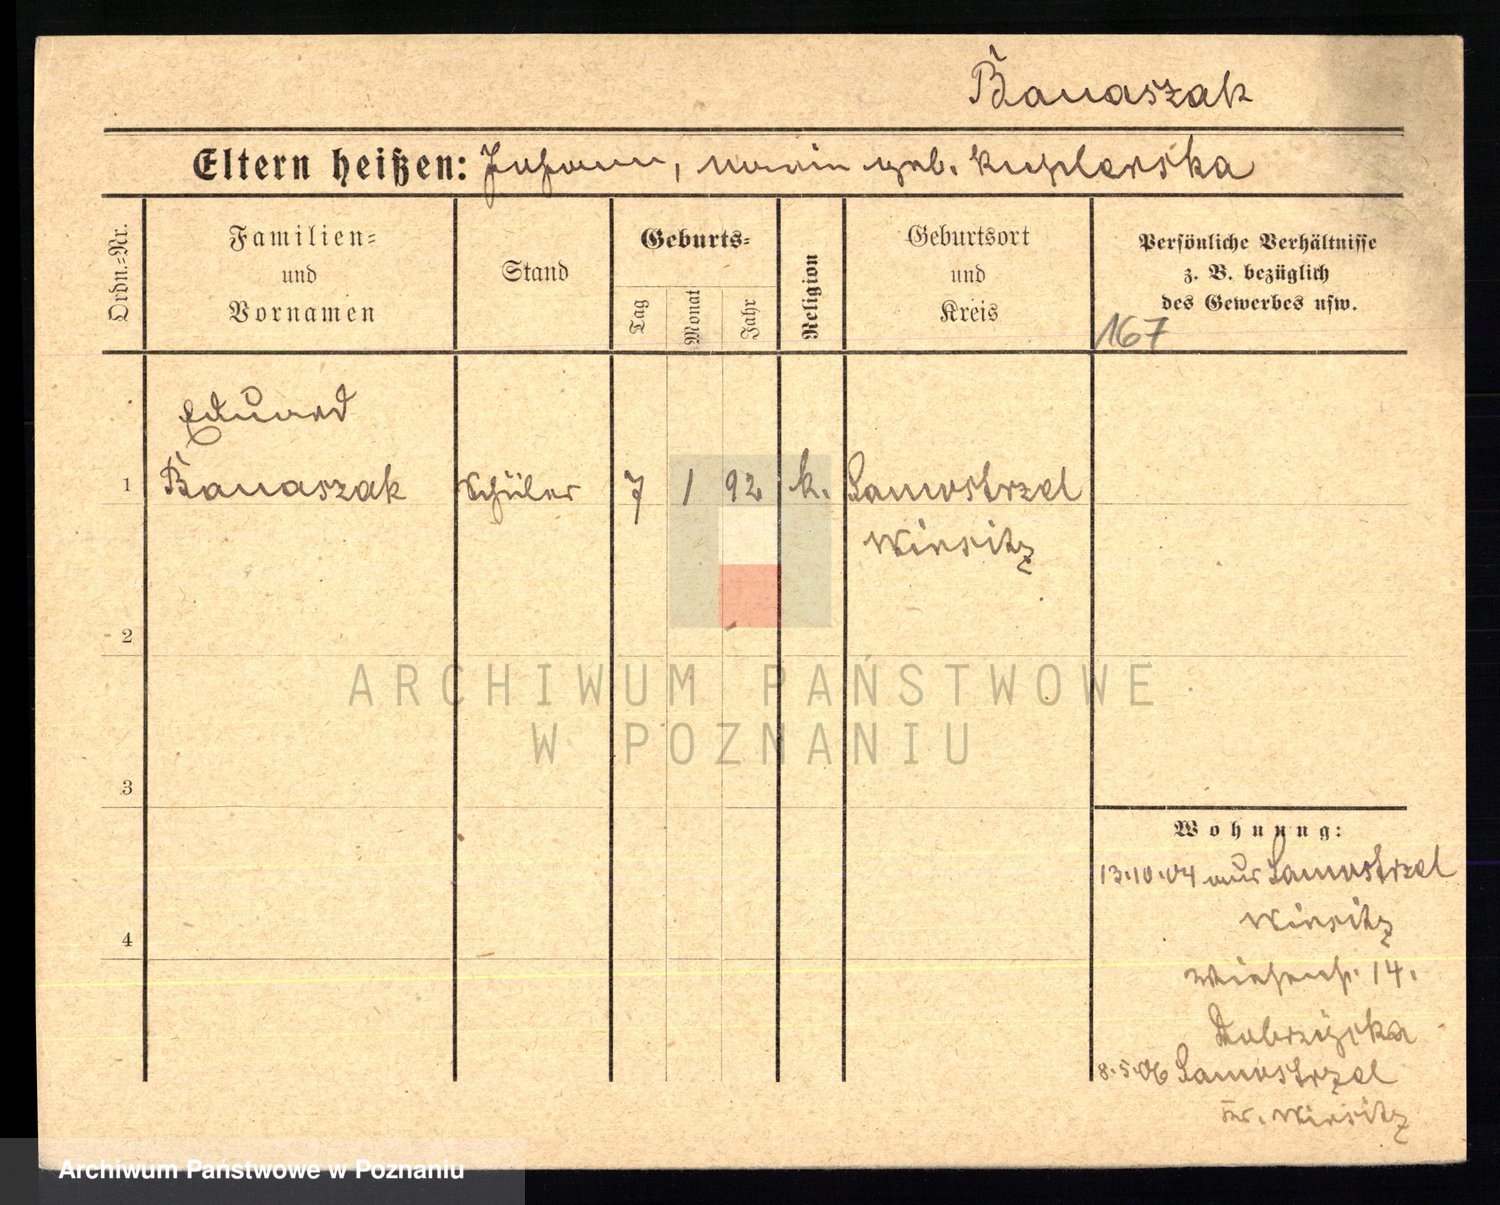 Banaszak
Eltern heißen: Johann, Marie geb. Kuzlerska
Ordn.-Nr.
Familien-
und
Vornamen
Stand
Geburts-
Tag
Monat
Jahr
Religion
Geburtsort
und
Kreis
Persönliche Verhältnisse
z. B. bezüglich
des Gewerbes usw.
167
Eduard
1 Banaszak Schüler 7 1 92 k. Samostrzel
Wirsitz
2
ARCHIWUM PAŃSTWOWE
W POZNANIU
3
Wohnung:
13.10.04 aus Samostrzel
Wirsitz
4
Wiesenst. 14.
Dobrzycka
8.5.06 Samostrzel
Kr. Wirsitz
Archiwum Państwowe w Poznaniu